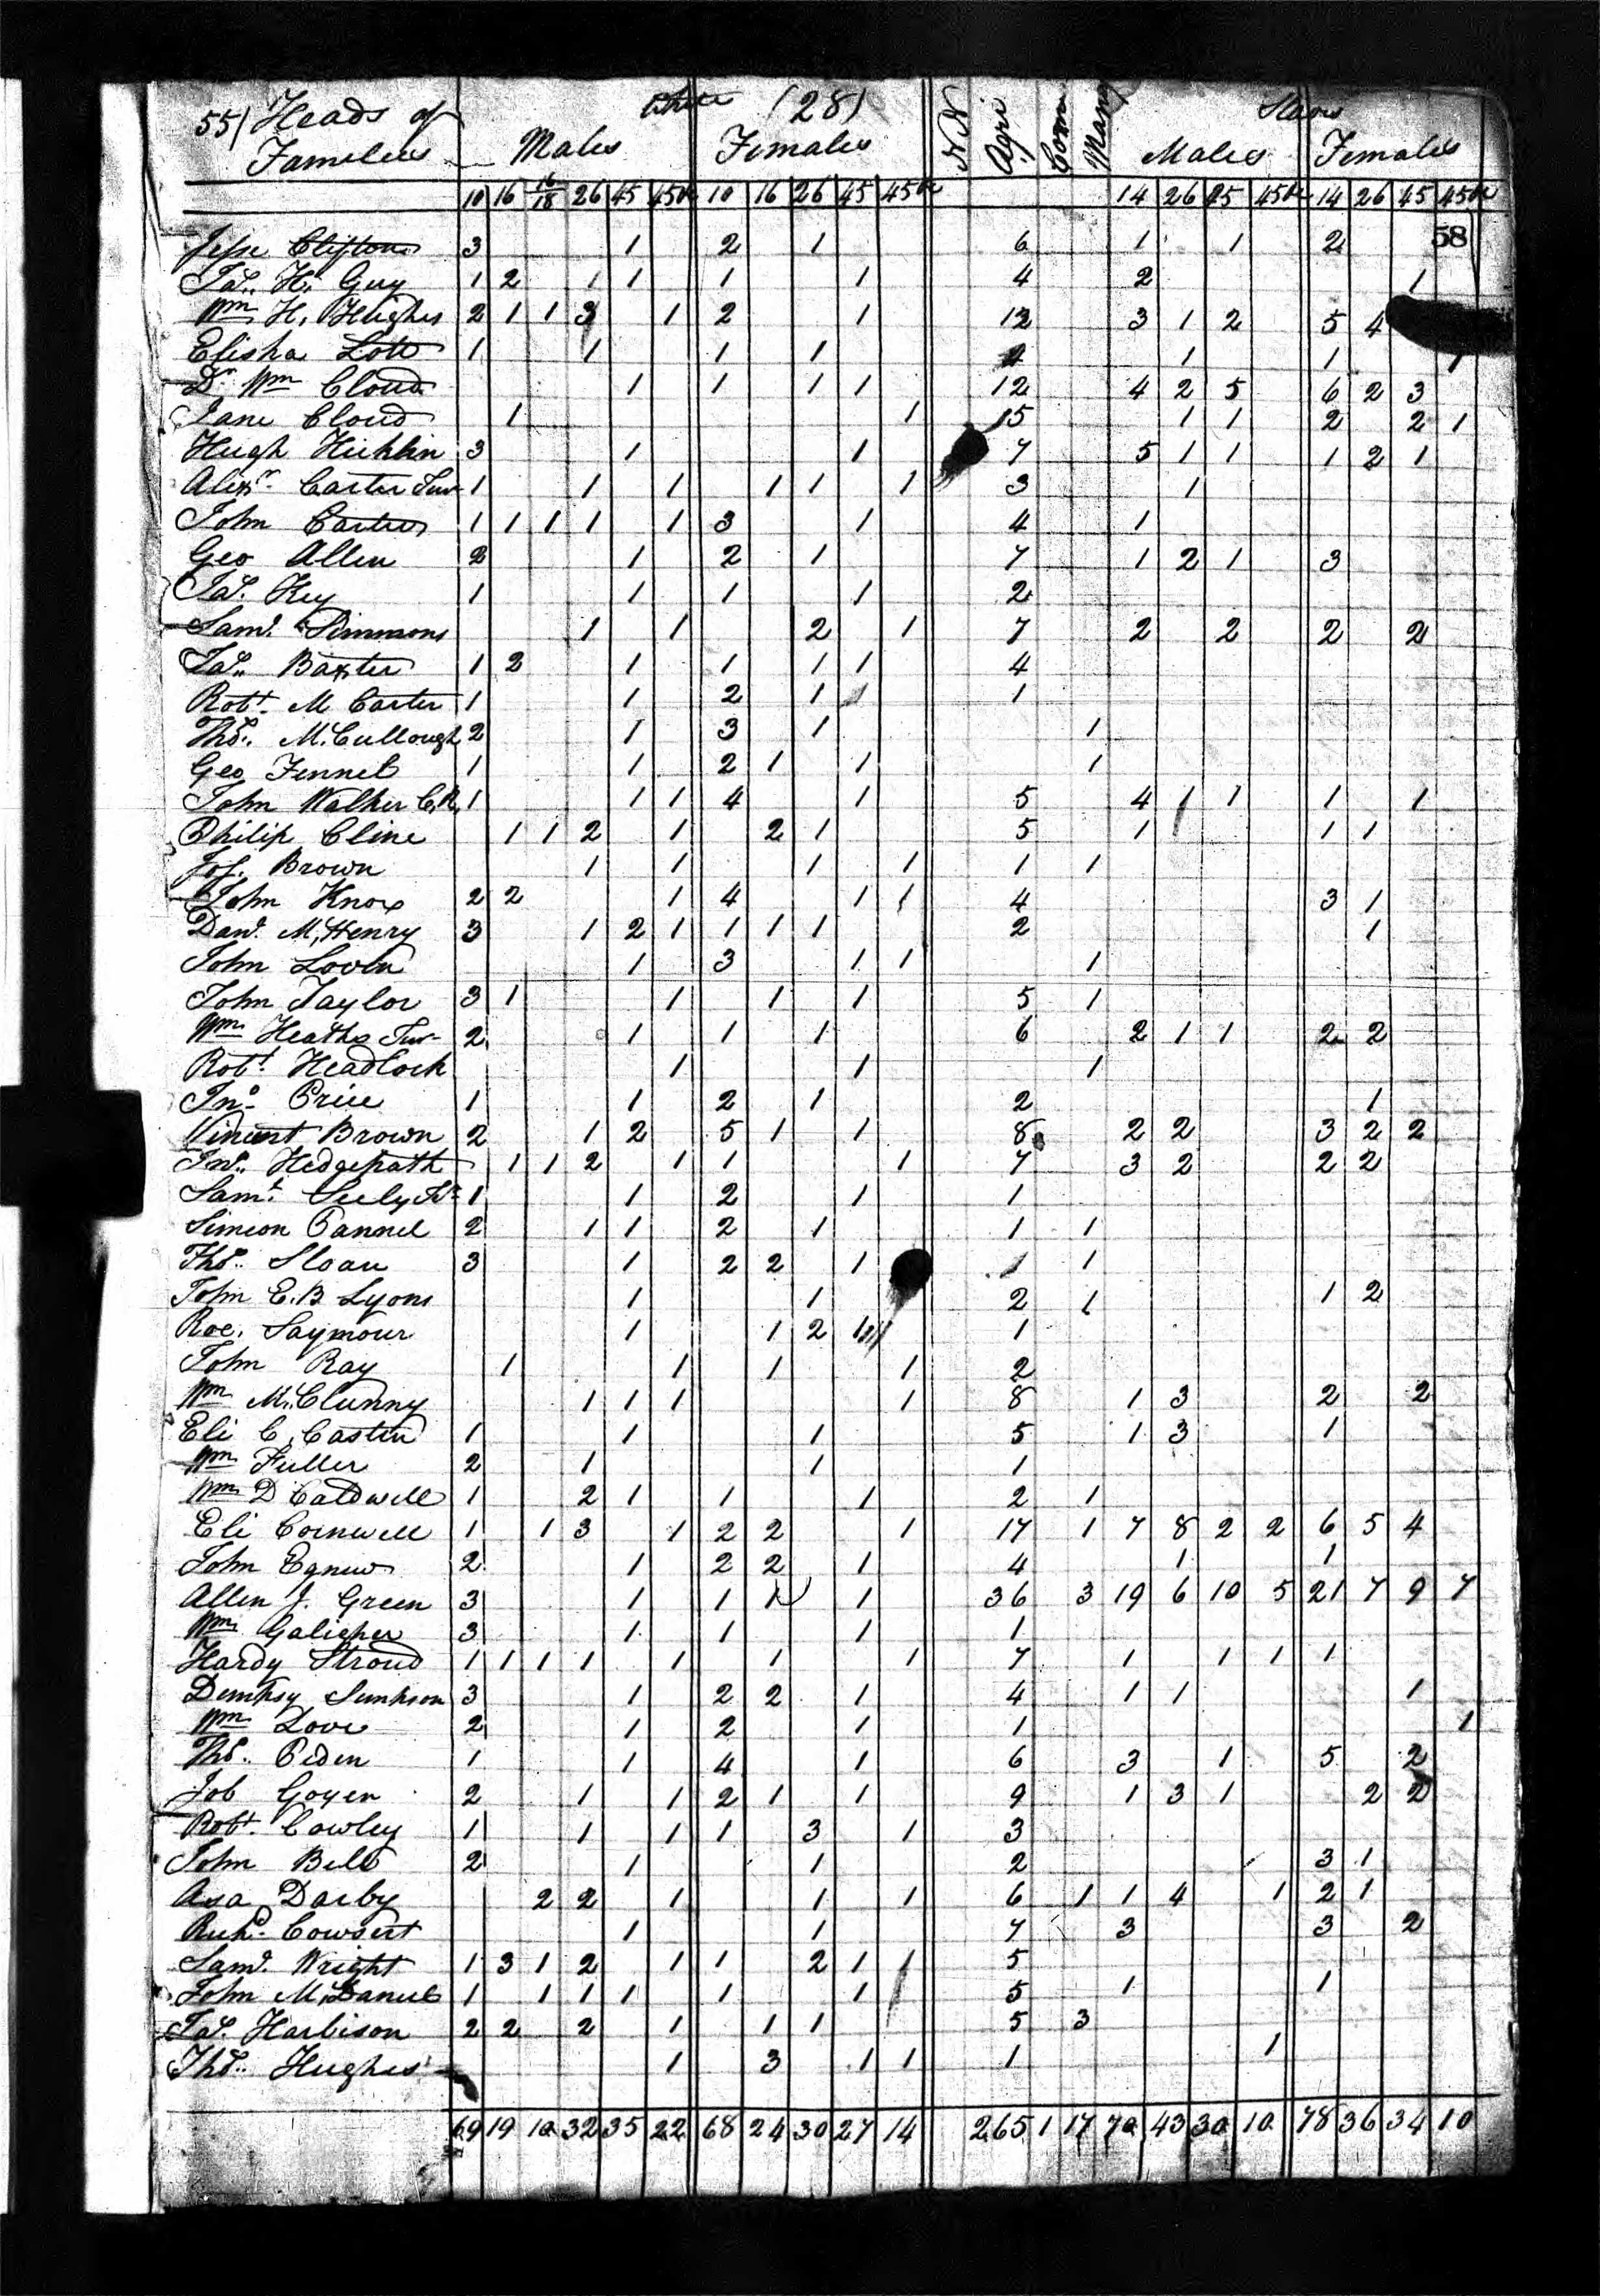 55) Heads of White (28) N N Agri Com Many Slaves
Families Males Females Males Females
10 16 16/18 26 45 45 10 16 26 45 45 14 26 45 45 14 26 45 45
58
Jesse Clifton 3 1 2 1 6 1 1 2
Jas. H. Guy 1 2 1 1 1 1 4 2 1
Wm H. Hughes 2 1 1 3 1 2 1 12 3 1 2 5 4
Elisha Lott 1 1 1 1 1 1 1
Dr Wm Cloud 1 1 1 1 12 4 2 5 6 2 3
Jane Cloud 1 1 15 1 1 2 2 1
Hugh Hicklin 3 1 1 7 5 1 1 1 2 1
Alexr. Carter 1 1 1 1 1 1 3 1
John Carter 1 1 1 1 1 3 1 4 1
Geo Allen 2 1 2 1 7 1 2 1 3
Jas. Key 1 1 1 1 2
Saml. Simmons 1 1 2 1 7 2 2 2 2
Jas. Baxter 1 2 1 1 1 1 4
Robt. M Carter 1 1 2 1 1 1
Thos. McCullough 2 1 3 1 1
Geo Fennel 1 1 2 1 1 1
John Walker C.R. 1 1 1 4 1 5 4 1 1 1 1
Philip Cline 1 1 2 1 2 1 5 1 1 1
Jos. Brown 1 1 1 1 1 1
John Knox 2 2 1 4 1 1 4 3 1
Danl. McHenry 3 1 2 1 1 1 1 2 1
John Loven 1 3 1 1 1
John Taylor 3 1 1 1 1 5 1
Wm Heath 2 1 1 1 6 2 1 1 2 2
Robt. Headlock 1 1 1
Jno. Price 1 1 2 1 2 1
Vincent Brown 2 1 2 5 1 1 8 2 2 3 2 2
Jno. Hedgepath 1 1 2 1 1 1 7 3 2 2 2
Saml. Seely 1 1 2 1 1
Simeon Pannel 2 1 1 2 1 1 1
Thos. Sloan 3 1 2 2 1 1 1
John E. B Lyons 1 1 2 1 1 2
Roe. Saymour 1 1 2 1 1
John Ray 1 1 1 1 2
Wm McClunny 1 1 1 1 8 1 3 2 2
Eli C. Castin 1 1 1 5 1 3 1
Wm Fuller 2 1 1 1
Wm D Caldwell 1 2 1 1 1 2 1
Eli Cornwell 1 1 3 1 2 2 1 17 1 7 8 2 2 6 5 4
John Egnew 2 1 2 2 1 4 1 1
Allen J. Green 3 1 1 1 1 36 3 19 6 10 5 21 7 9 7
Wm Galigher 3 1 1 1 1
Hardy Stroud 1 1 1 1 1 1 1 7 1 1 1 1
Dempsy Simpson 3 1 2 2 1 4 1 1 1
Wm Love 2 1 2 1 1 1
Thos. Peden 1 1 4 1 6 3 1 5 2
Job Goyen 2 1 1 2 1 1 9 1 3 1 2 2
Robt. Cowley 1 1 1 1 3 1 3
John Bell 2 1 1 2 3 1
Asa Darby 2 2 1 1 1 6 1 1 4 1 2 1
Richd. Cowsert 1 1 7 3 3 2
Saml. Wright 1 3 1 2 1 1 2 1 1 5
John McDaniel 1 1 1 1 1 1 5 1 1
Jas. Harbison 2 2 2 1 1 1 5 3
Thos. Hughes 1 3 1 1 1 1
69 19 10 32 35 22 68 24 30 27 14 265 1 17 70 43 30 10 78 36 34 10